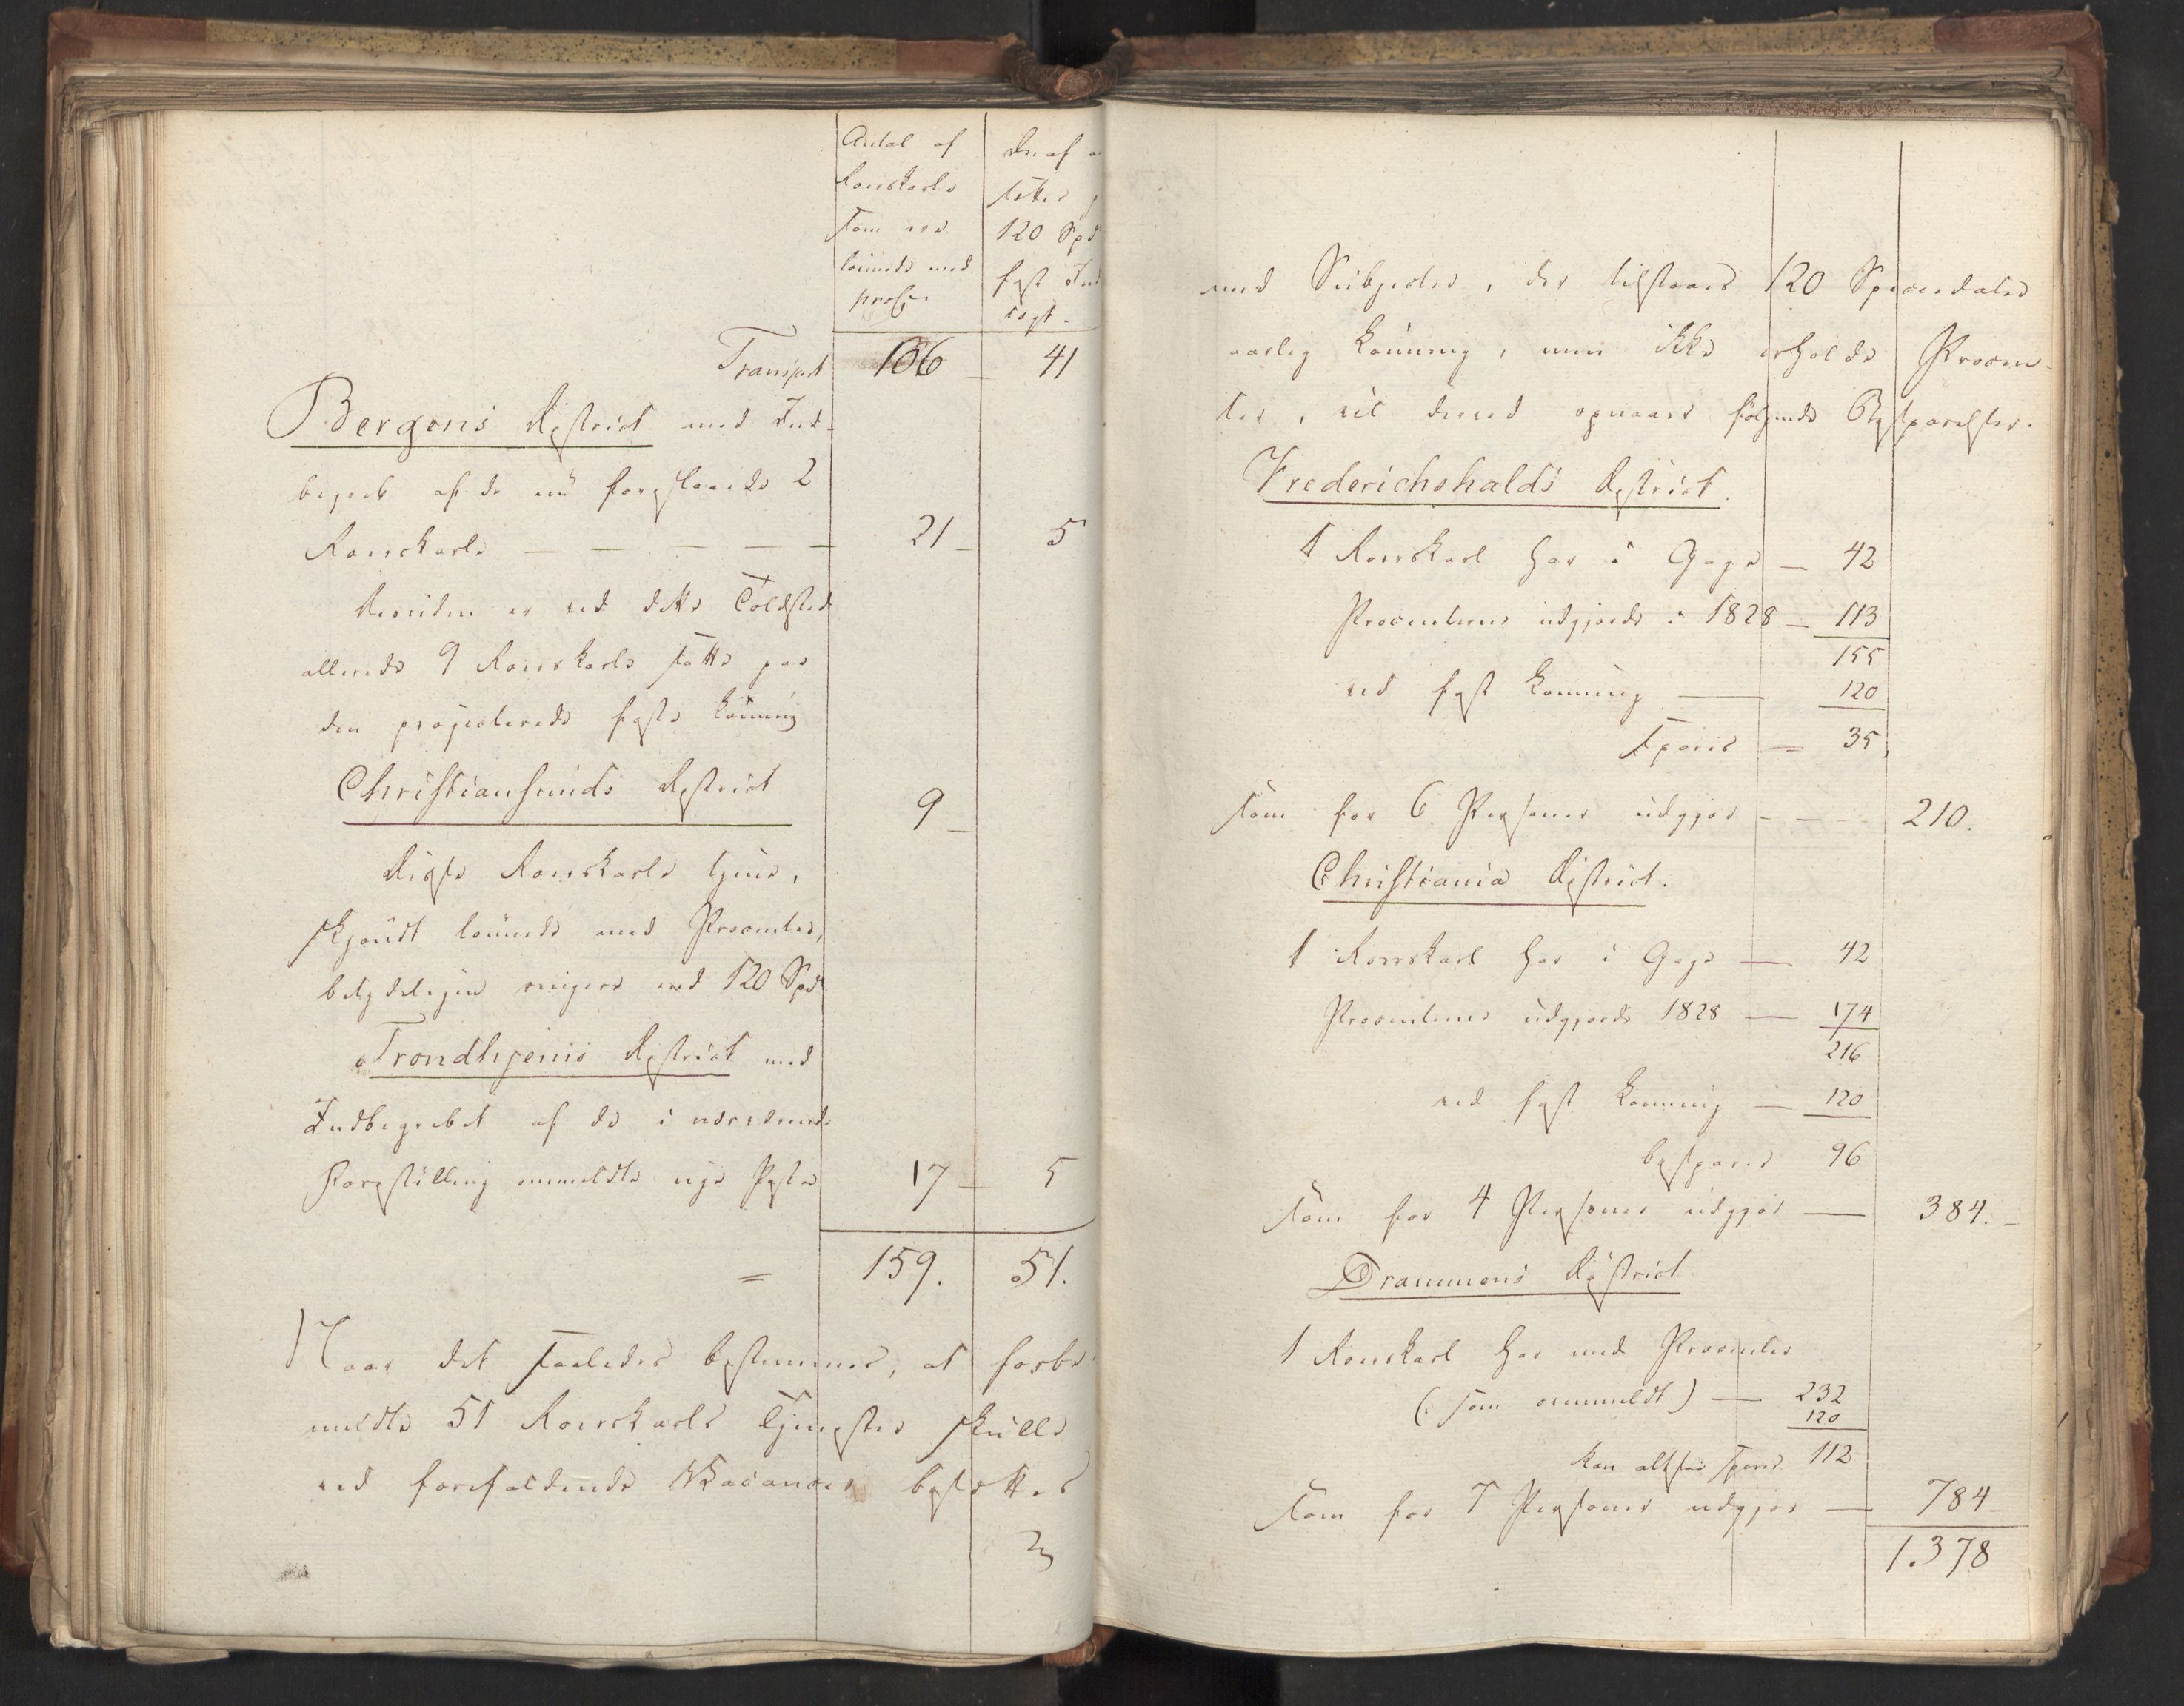 Antal af
Rorskarle
som ere
lønnede med
procter
Deraf
sættes
120 Spd
fast Ind
tægt.
Transport 106 41
Bergens District med Ind-
begreb af de nu foreslaaede 2
Rorskarle 21 5
Desuden er ved dette Toldsted
allerede 9 Rorskarle satte paa
den projecterede faste Lønning
Christiansunds District 9
Disse Rorskarle tjene,
skjøndt lønnede med Procenter,
betydeligen ringere end 120 Spd
Trondhjems District med
Indbegrebet af de i nærværende
Forestilling ommeldte nye Poster 17 5
= 159. 51.
Naar det saaledes bestemmes, at forbe-
meldte 51 Rorskarls Tjenester skulle
ved forefaldende Vacancer besættes
med Subjecter, der tilstaaes 120 Speciedaler
aarlig Lønning, men ikke erholde Procen-
ter, vil derved opnaaes følgende Besparelser.
Frederichshalds District.
1 Rorskarl har i Gage — 42
Procenterne udgjorde i 1828 — 113
155
ved fast Lønning — 120
spares — 35,
som for 6 Personer udgjør - - - 210.
Christiania District.
1 Rorskarl har i Gage — 42
Procenterne udgjorde 1828 — 174
216
ved fast Lønning — 120
besparer 96
som for 4 Personer udgjør — 384.
Drammens District
1 Rorskarl har med Procenter
(: som ommeldt) — 232
120
kan altsaa spares 112
som for 7 Personer udgjør — 784
1.378